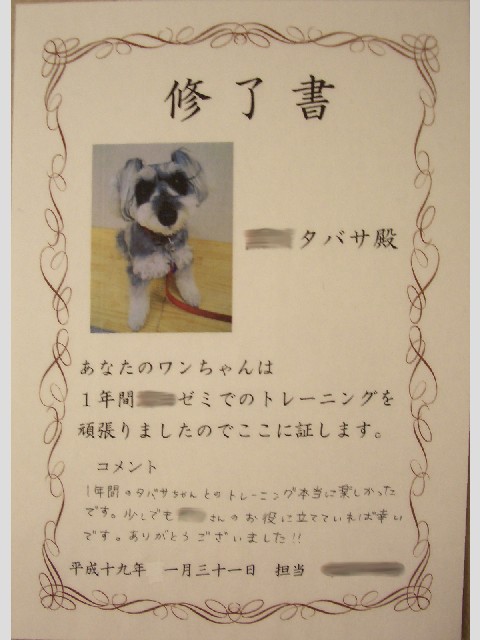 修了書
タバサ殿
あなたのワンちゃんは
1年間 ゼミでのトレーニングを
頑張りましたのでここに証します。
コメント
1年間のタバサちゃんとのトレーニング本当に楽しかった
です。少しでも さんのお役に立てていれば幸い
です。ありがとうございました!!
平成十九年 一月三十一日 担当